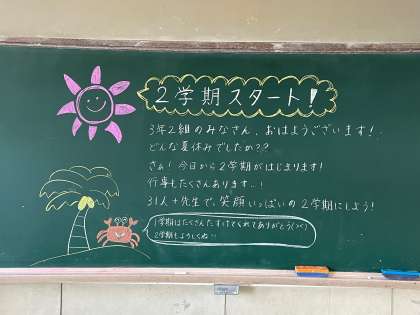 2学期スタート!
3年2組のみなさん、おはようございます!
どんな夏休みでしたか??
さぁ!今日から2学期がはじまります!
行事もたくさんあります..!
31人+先生で、笑顔いっぱいの2学期にしよう!
1学期はたくさんたすけてくれてありがとう
2学期もよろしくね